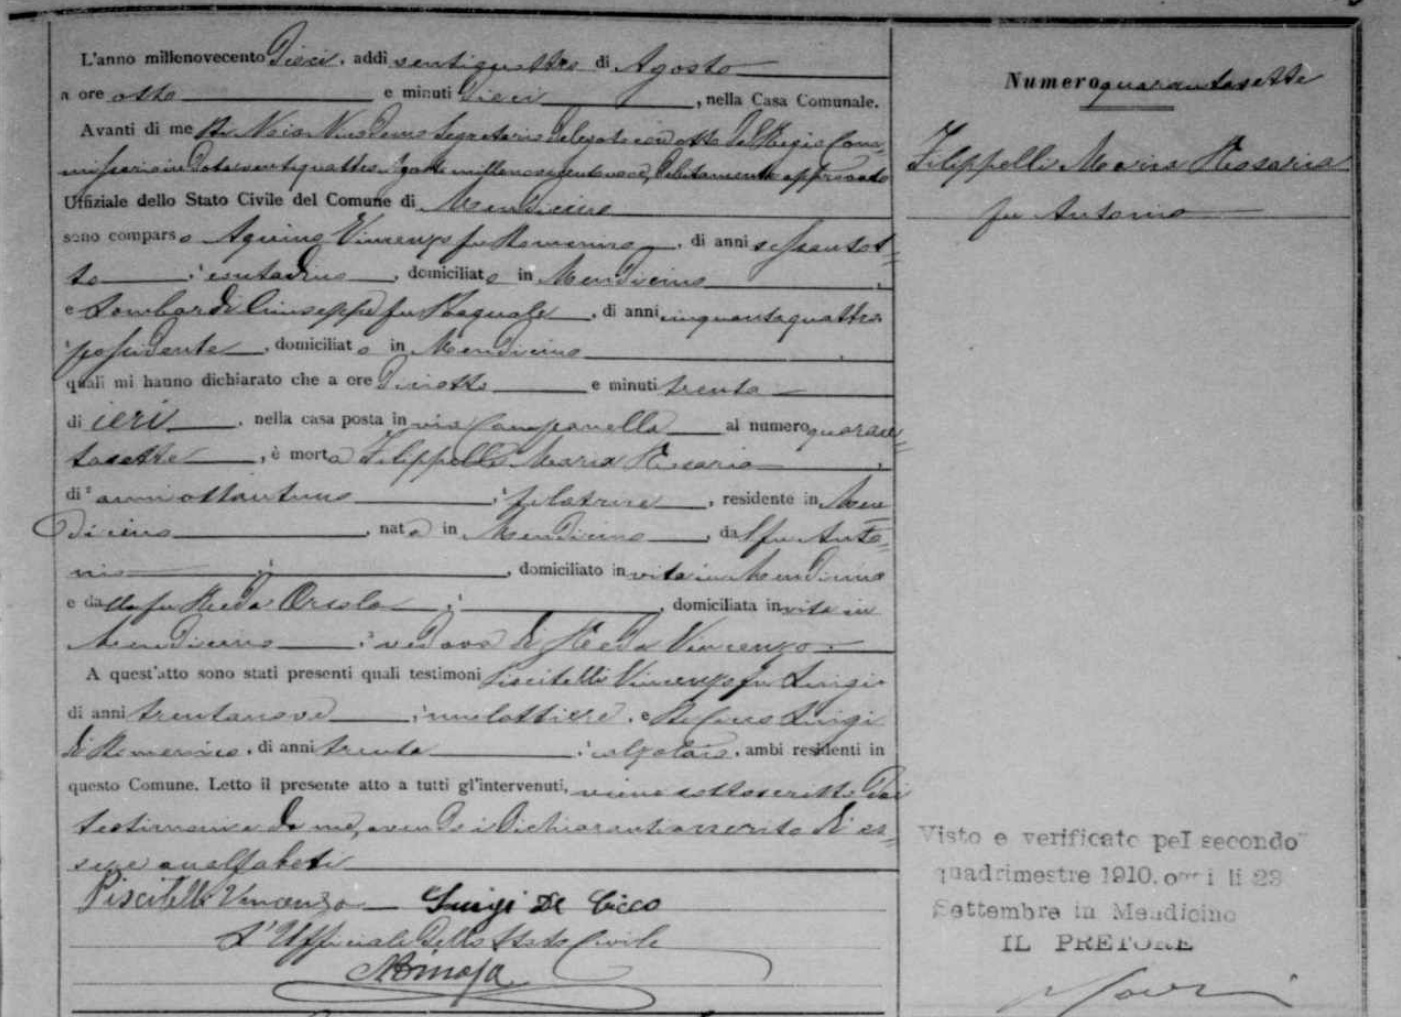 L'anno millenovecento Dieci, addì ventiquattro di Agosto
a ore otto e minuti Dieci, nella Casa Comunale.
Avanti di me Segretario delegato con atto del Regio Com=
missario in data ventiquattro millenovecentonove, debitamente approvato
Uffiziale dello Stato Civile del Comune di Mendicino
sono comparso Aquino Vincenzo fu Domenico, di anni sessantot=
to, contadino, domiciliato in Mendicino
e Lombardi Giuseppe fu Pasquale, di anni cinquantaquattro
possidente, domiciliato in Mendicino
quali mi hanno dichiarato che a ore Diciotto e minuti trenta
di ieri, nella casa posta in via Campanella al numero quaran=
tasette, è morta Filippelli Maria Rosaria
di anni ottantuno, filatrice, residente in Men
dicino, nata in Mendicino, dal fu Anto=
nio, domiciliato in vita in Mendicino
e dalla fu Reda Orsola, domiciliata in vita in
Mendicino, vedova di Reda Vincenzo
A quest'atto sono stati presenti quali testimoni Piscitelli Vincenzo fu Luigi
di anni trentanove, mulattiere, e De Cicco Luigi
di Domenico, di anni trenta, calzolaio, ambi residenti in
questo Comune. Letto il presente atto a tutti gl'intervenuti, viene sottoscritto dai
testimoni e da me, avendo i dichiaranti asserito di es=
sere analfabeti
Piscitelli Vincenzo Luigi De Cicco
L'Ufficiale dello Stato Civile
Numero quarantasette
Filippelli Maria Rosaria
fu Antonio
Visto e verificato pel secondo
quadrimestre 1910, oggi li 23
Settembre in Mendicino
IL PRETORE